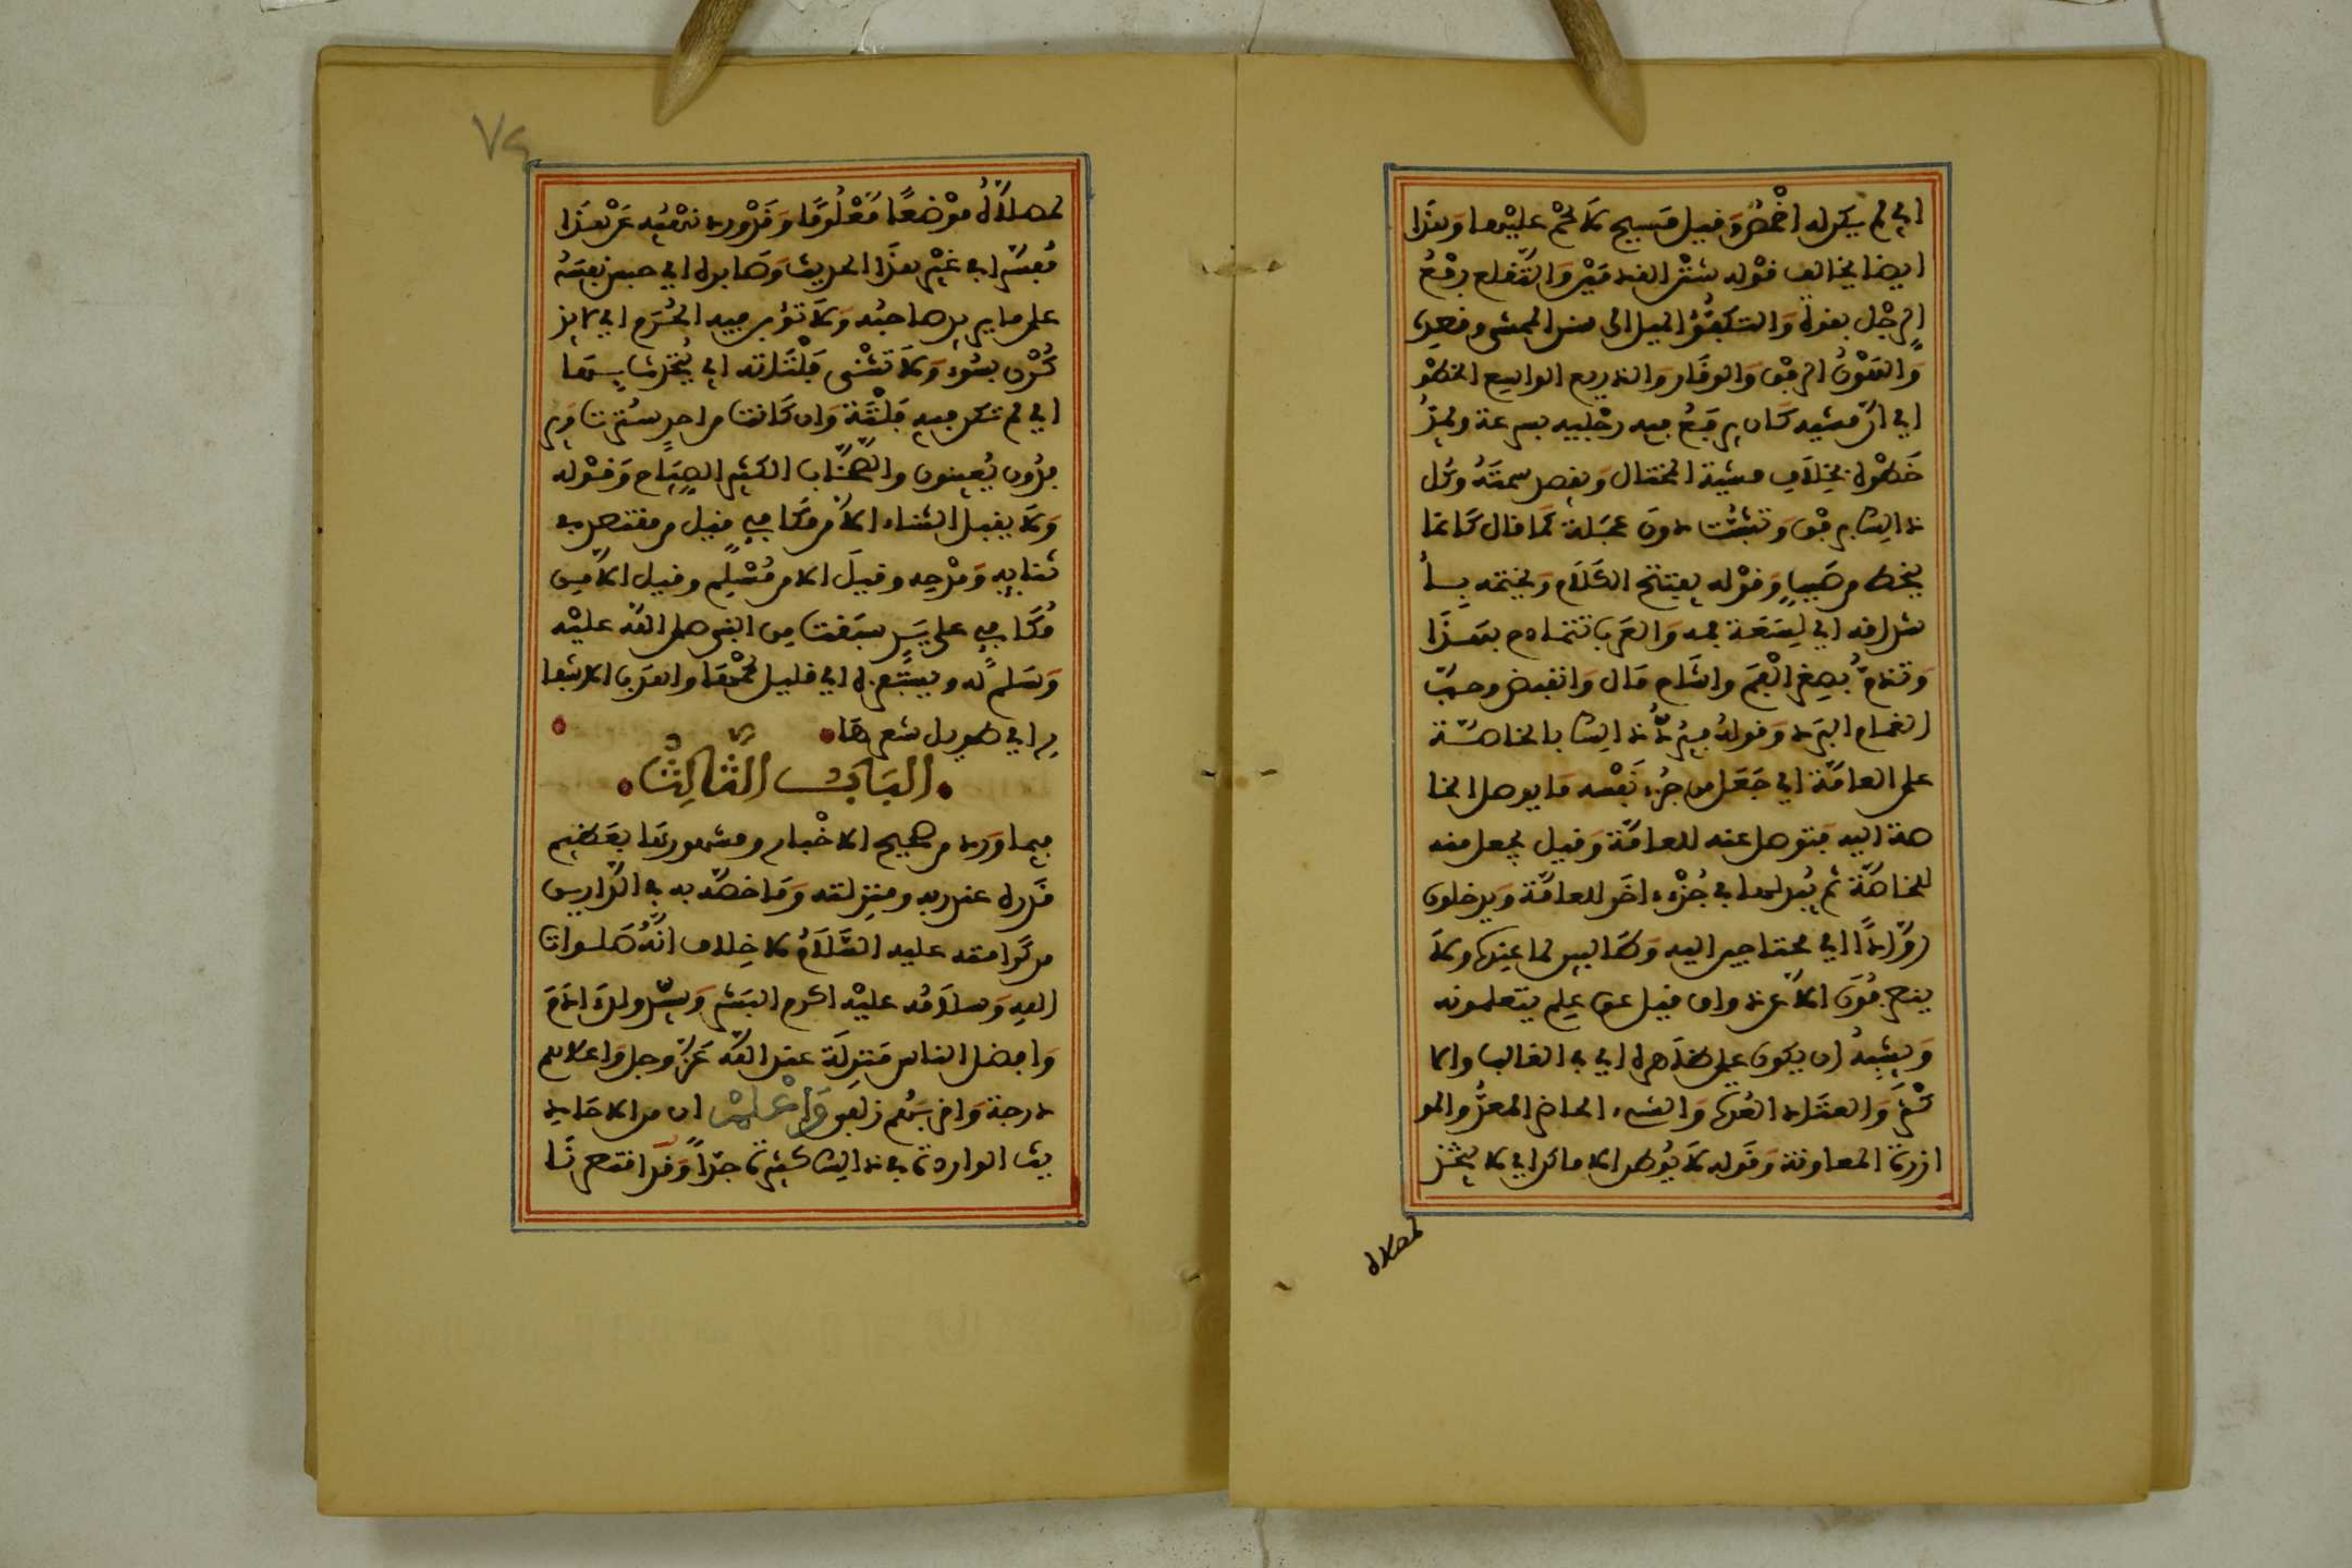 اي لم يكن له اخْمَصُ وَقيل مَسيح لَا لحْم عليْهما وَهذَا
ايضا يخالف قوْله شثْن القدمَيْن وَالتّقلع رفْعُ
الرجْل بقوة وَالتكفُّؤ الميل الى سنن الممشى وقصده
وَالهَوْنُ الرفق وَالوقَار وَالذريع الواسع الخطْو
اي انّ مشيه كَان يرفَعُ فيه رجْليه بسرعة ويمدُّ
خَطْوه بخلَاف مشْية المختال وَيقصد سمتَهُ وكُل
ذلك برفْق وَتثبُّت دونَ عجَلة كمَا قال كَانما
ينحط من صَببٍ وَقوْله يفتتح الكَلَام وَيختمه بِاَ
شداقه اي لِسَعَة فمه وَالعَرب تتمادح بهَذَا
وَتذمُّ بصِغر الْفَم واشَاح مَال وَانقبض وحبّ
الغمام البرَد وَقوله فيرُدُّ ذلك بالخاصّة
على العامّة اي جَعَل من جُزء نَفْسه مَا يوصل الخا
صة اليه فتوصل عنه للعامّة وَقيل يجعل منه
للخاصّة ثم يُبدلها في جُزْء اخر للعامّة وَيدخلون
روّادًا اي محتاجين اليه وَطَالبين لما عِنده ولَا
ينصرفُونَ الاّ عن ذواق قيل عن علم يتعلمونه
وَيشبهُ ان يكون على ظَاهره اي في الغالب والا
كْثَر وَالعتَاد العُدة وَالشيء الحاضر المعدُّ والمو
ازرة المعاونة وَقَوله لَا يُوطن الاماكن اي لا يتخذ
لمصلاه
لمصلَّاهُ موْضعًا مَّعْلُومًا وَقَدْ ورد نهْيُه عَنْ هذَا
مُفسّرًا في غيْر هذَا الحديث وَصَابره اي حبس نفسَهُ
على ما يريد صاحبُه وَلَا تؤبن فيه الحُرَم اي لا يذ
كَرْن بسُوء وَلَا تنْثى فلْتَاته اي يُتَحدَّث بهَا
اي لم تكن فيه فلْتَة وَان كَانت من احدٍ سُترت وَير
فدُون يُعينون والصّخّاب الكثير الصّيَاح وَقوْله
وَلَا يقبل الثناء الا من مُكافئ قيل من مقتصد في
ثنايه وَمدْحه وقيلَ الا من مُسْلم وقيل الا من
مُكَافئ على يَدٍ سبَقت من النبي صلى الله عليْه
وَسَلم له ويستَفزه اي قليل لحْمهَا واهدَب الاشفا
ر اي طويل شعرها
البَابُ الثَّالِثُ
فيما وَرد من صحيح الاخْبار ومشهورهَا بعَظيم
قَدره عند ربه ومنزلته وَمَا خصّه به في الدّارين
من كرامته عليه السَّلَامُ لا خِلاف انّهُ صَلوات
الله وَسلامُه عليْه اكرم البَشر وَسيّد ولد ادَم
وَافضل الناس مَنزلَة عند الله عَزّ وجل وَاعلاهم
درجة وَاقربَهُم زلفى وَاعْلمْ ان من الاحَاد
يث الواردة في ذلك كثيرة جدّاً وَقَد اقتصرنَا